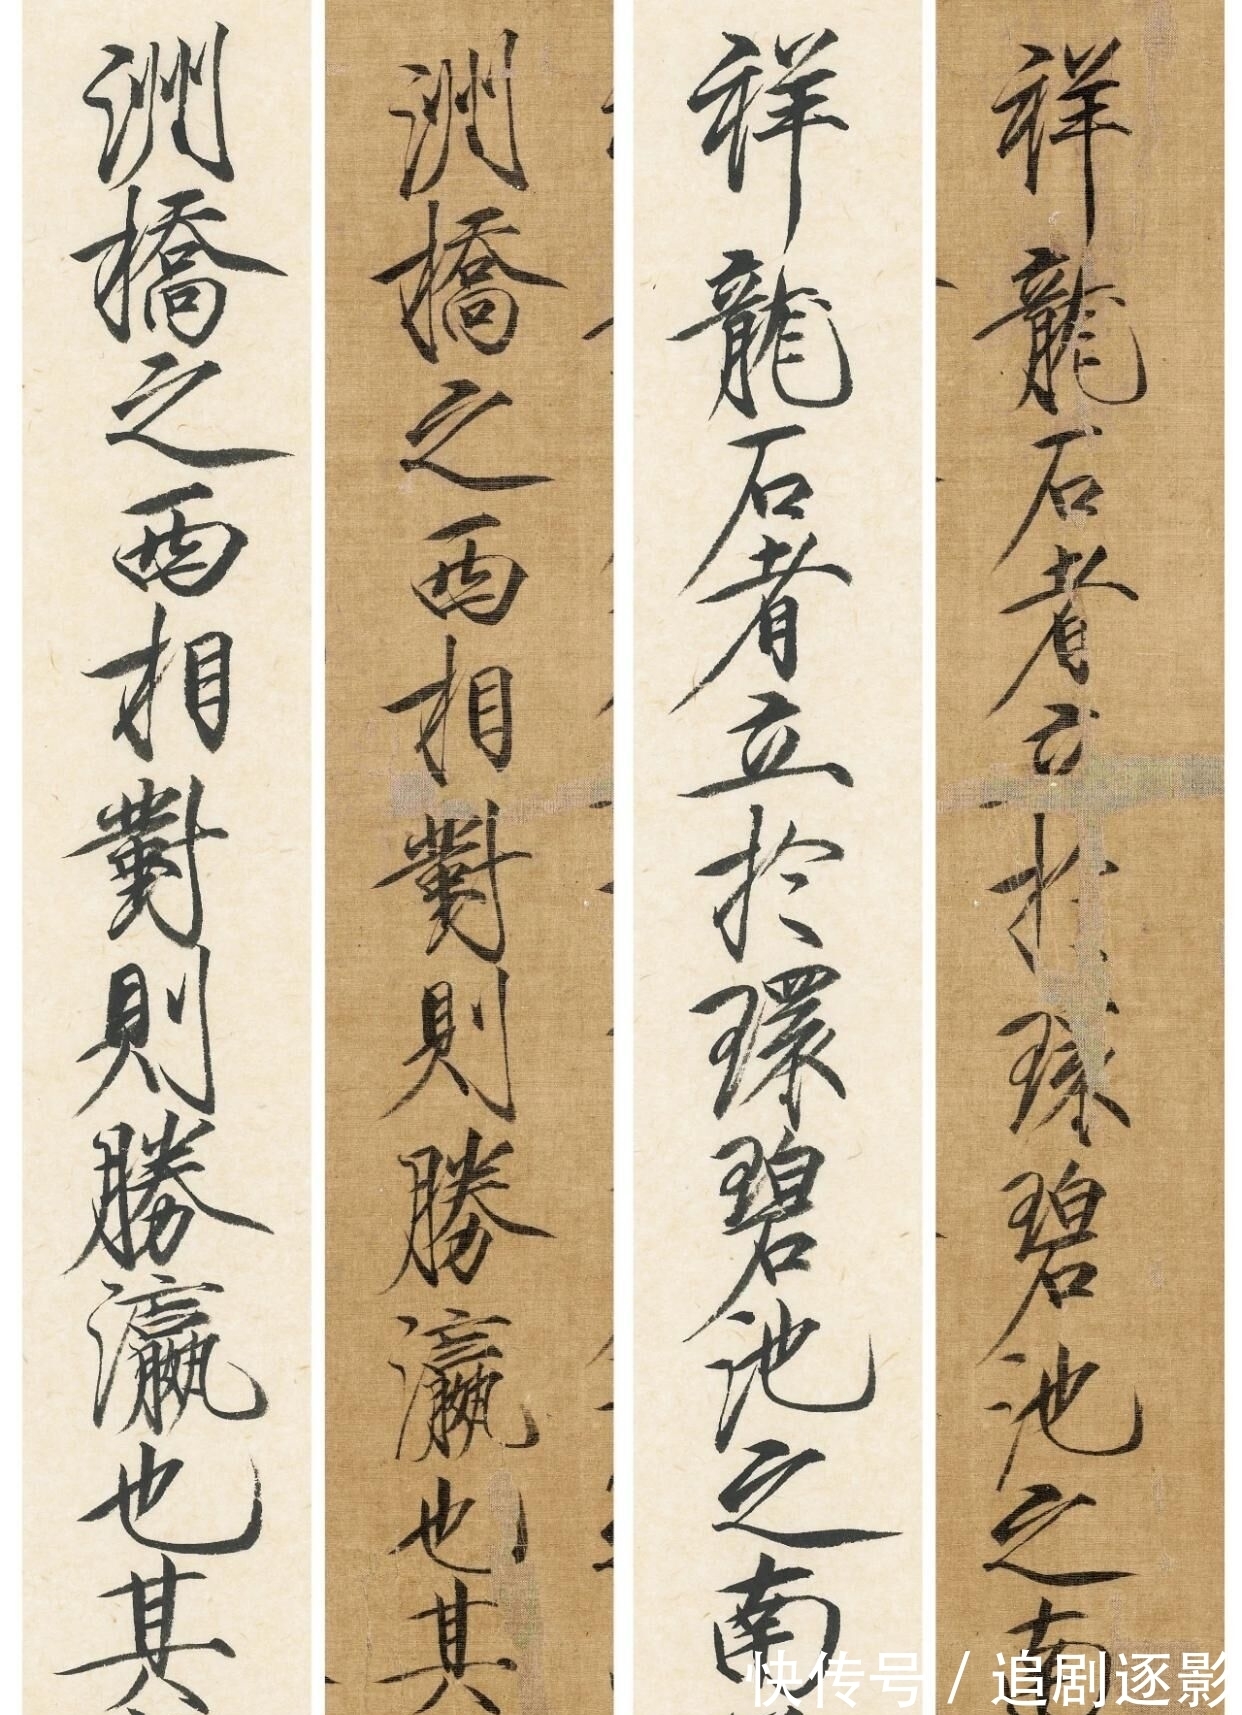 祥龍石者立於環碧池之南
祥龍石者立於環碧池之南
洲橋之西相對則勝瀛也其
洲橋之西相對則勝瀛也其
快传号 / 追剧逐影